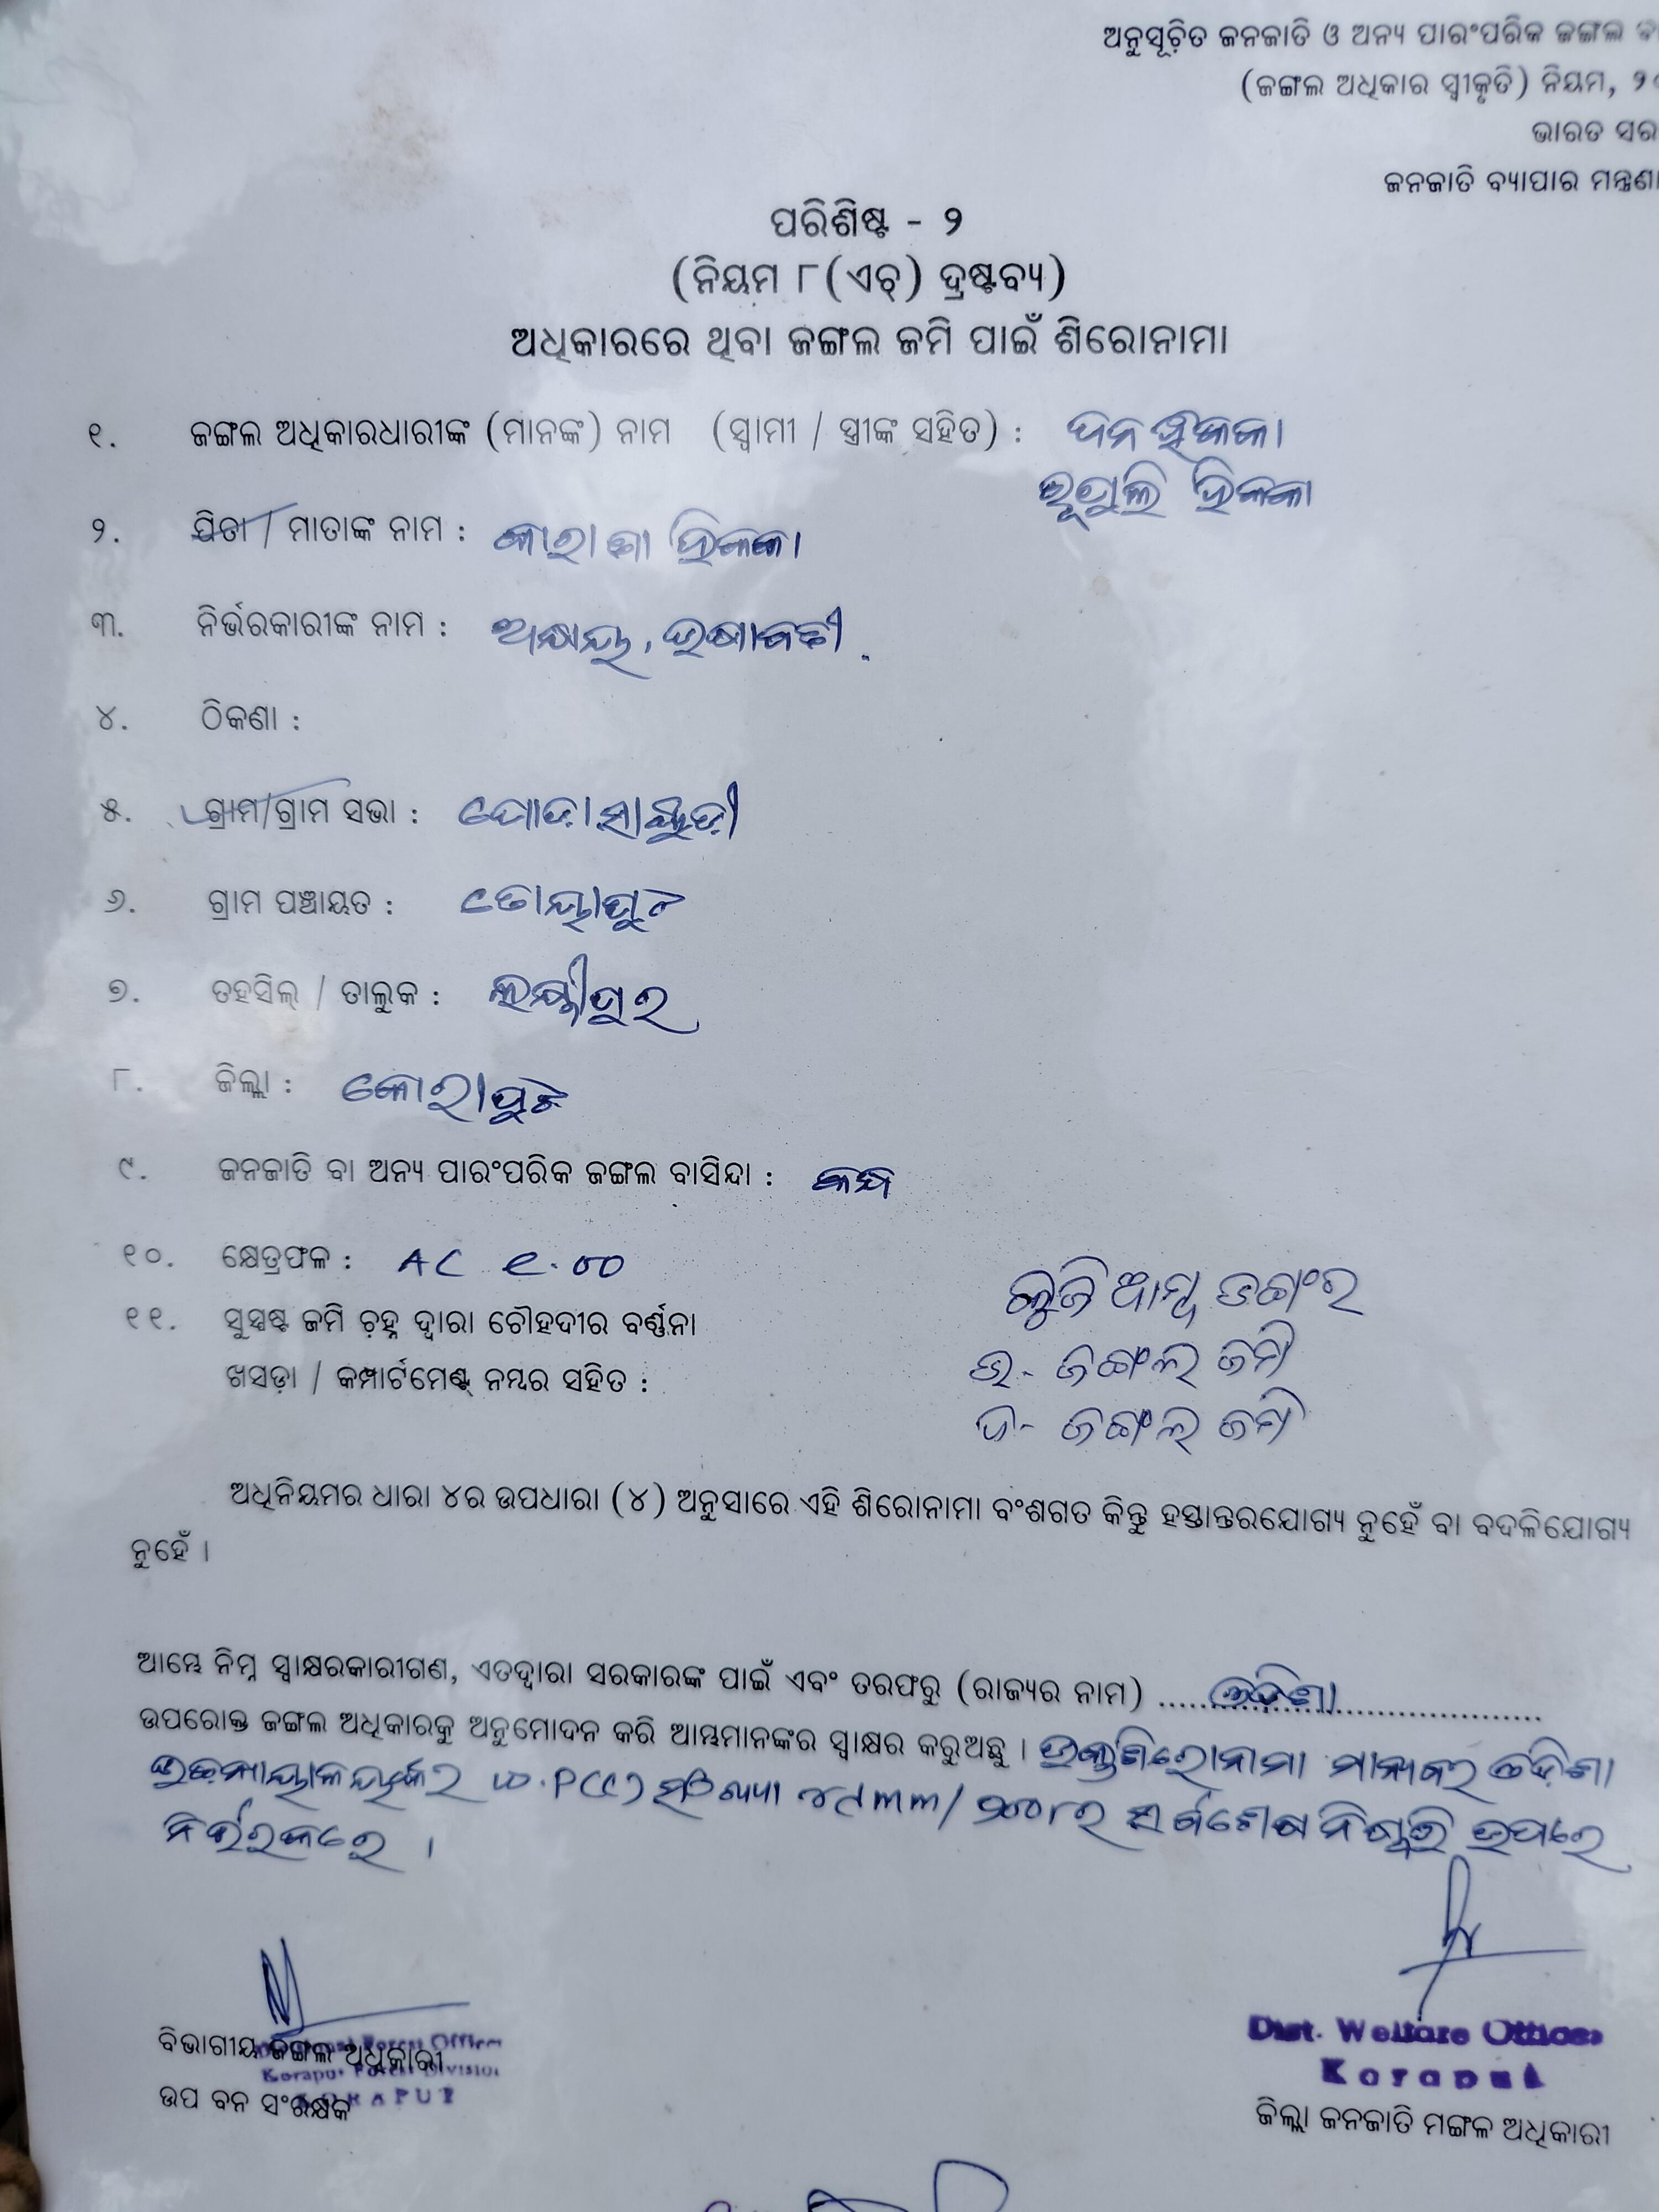 ଅନୁସୂଚିତ ଜନଜାତି ଓ ଅନ୍ୟ ପାରଂପରିକ ଜଙ୍ଗଲ
(ଜଙ୍ଗଲ ଅଧିକାର ସ୍ୱୀକୃତି) ନିୟମ, ୨
ଭାରତ ସର
ଜନଜାତି ବ୍ୟାପାର ମନ୍ତ୍ରଣା
ପରିଶିଷ୍ଟ - ୨
(ନିୟମ ୮(ଏଚ୍) ଦ୍ରଷ୍ଟବ୍ୟ)
ଅଧିକାରରେ ଥିବା ଜଙ୍ଗଲ ଜମି ପାଇଁ ଶିରୋନାମା
୧. ଜଙ୍ଗଲ ଅଧିକାରଧାରୀଙ୍କ (ମାନଙ୍କ) ନାମ (ସ୍ୱାମୀ / ସ୍ତ୍ରୀଙ୍କ ସହିତ) :
ହିକକା
୨. ପିତା / ମାତାଙ୍କ ନାମ : ହିକକା
୩. ନିର୍ଭରକାରୀଙ୍କ ନାମ :
୪. ଠିକଣା :
୫. ଗ୍ରାମ/ଗ୍ରାମ ସଭା :
୬. ଗ୍ରାମ ପଞ୍ଚାୟତ : ତୋୟାପୁଟ
୭. ତହସିଲ୍ / ତାଲୁକ : ଲକ୍ଷ୍ମୀପୁର
୮. ଜିଲ୍ଲା : କୋରାପୁଟ
୯. ଜନଜାତି ବା ଅନ୍ୟ ପାରଂପରିକ ଜଙ୍ଗଲ ବାସିନ୍ଦା : କନ୍ଧ
୧୦. କ୍ଷେତ୍ରଫଳ : AC
୧୧. ସୁସ୍ପଷ୍ଟ ଜମି ଚିହ୍ନ ଦ୍ୱାରା ଚୌହଦୀର ବର୍ଣ୍ଣନା
ଖସଡ଼ା / କମ୍ପାର୍ଟମେଣ୍ଟ ନମ୍ବର ସହିତ :
ଉ - ଜଙ୍ଗଲ ଜମି
ଦ - ଜଙ୍ଗଲ ଜମି
ଅଧିନିୟମର ଧାରା ୪ର ଉପଧାରା (୪) ଅନୁସାରେ ଏହି ଶିରୋନାମା ବଂଶଗତ କିନ୍ତୁ ହସ୍ତାନ୍ତରଯୋଗ୍ୟ ନୁହେଁ ବା ବଦଳିଯୋଗ୍ୟ
ନୁହେଁ ।
ଆମ୍ଭେ ନିମ୍ନ ସ୍ୱାକ୍ଷରକାରୀଗଣ, ଏତଦ୍ୱାରା ସରକାରଙ୍କ ପାଇଁ ଏବଂ ତରଫରୁ (ରାଜ୍ୟର ନାମ) ..... ଓଡ଼ିଶା .....
ଉପରୋକ୍ତ ଜଙ୍ଗଲ ଅଧିକାରକୁ ଅନୁମୋଦନ କରି ଆମ୍ଭମାନଙ୍କର ସ୍ୱାକ୍ଷର କରୁଅଛୁ । ଉକ୍ତ ଶିରୋନାମା ମାନ୍ୟବର ଓଡ଼ିଶା
ଉଚ୍ଚନ୍ୟାୟାଳୟଙ୍କର ସଂଖ୍ୟା ସର୍ବଶେଷ ନିଷ୍ପତ୍ତି ଉପରେ
ନିର୍ଭରକରେ ।
ବିଭାଗୀୟ ଜଙ୍ଗଲ ଅଧିକାରୀ
Forest Officer
Korapur Forest Division
ଉପ ବନ ସଂରକ୍ଷକ
Dist. Welfare Officer
Koraput
ଜିଲ୍ଲା ଜନଜାତି ମଙ୍ଗଳ ଅଧିକାରୀ